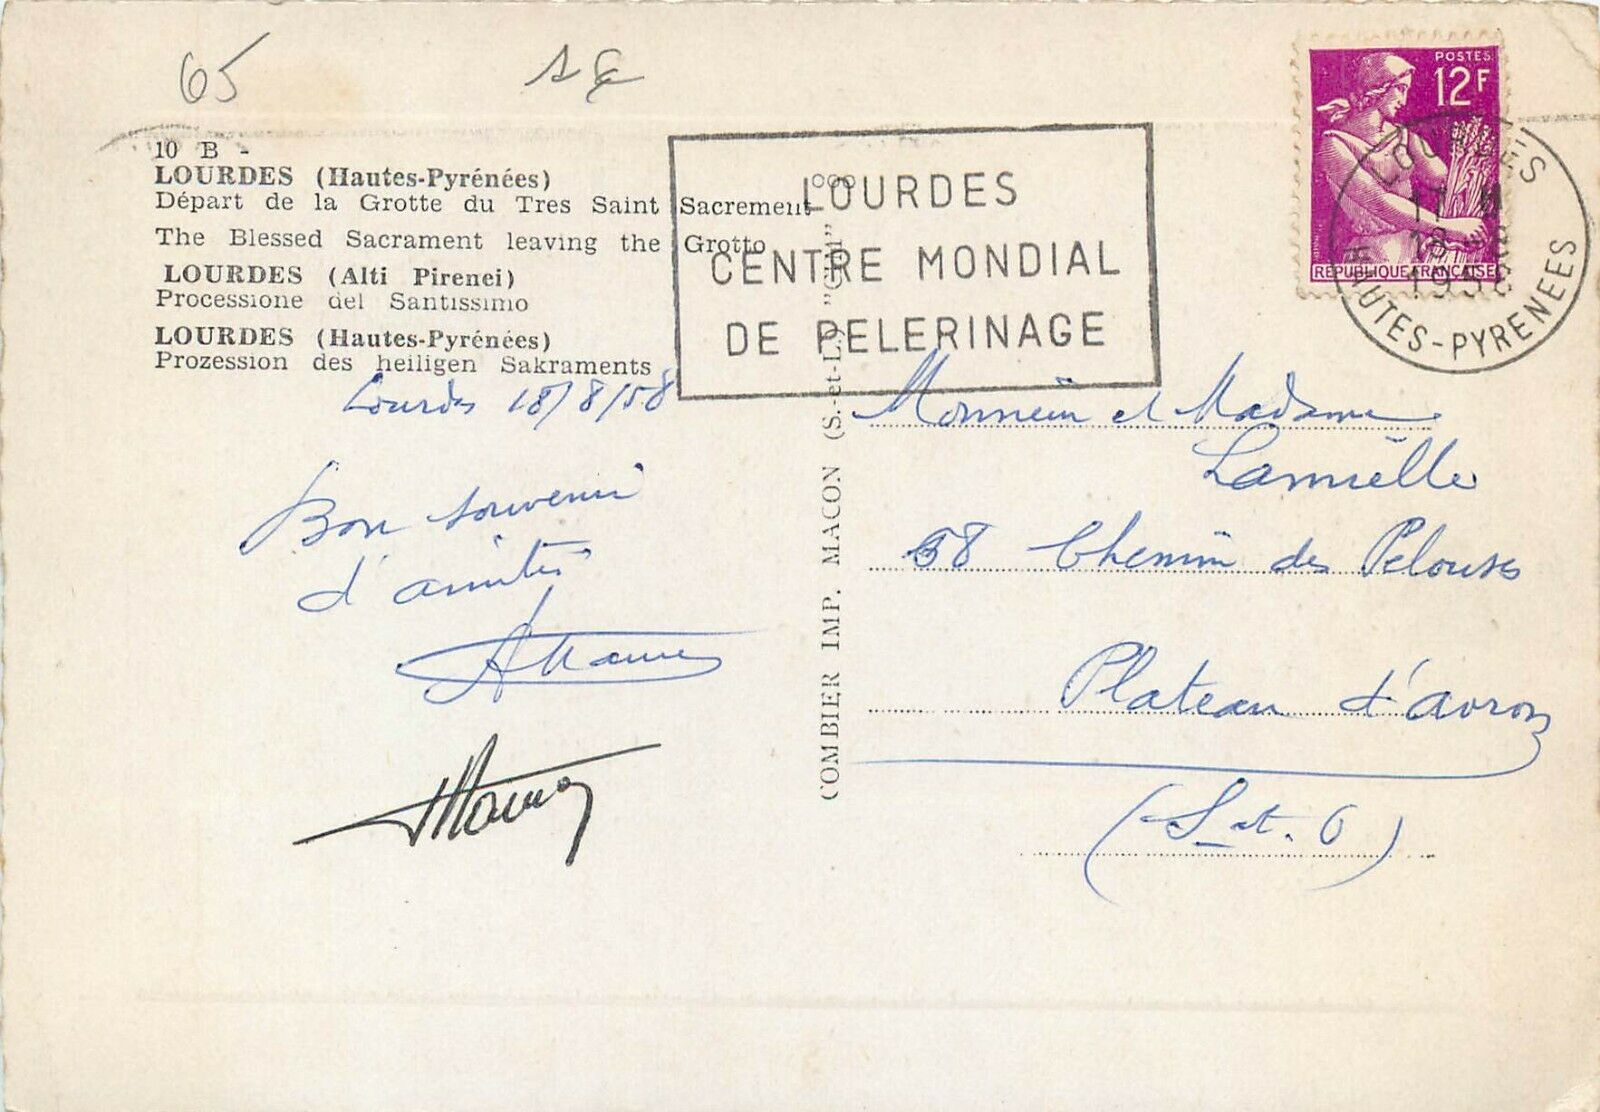 65
10 B -
LOURDES (Hautes-Pyrénées)
Départ de la Grotte du Tres Saint Sacrement
The Blessed Sacrament leaving the Grotto
LOURDES (Alti Pirenei)
Processione del Santissimo
LOURDES (Hautes-Pyrénées)
Prozession des heiligen Sakraments
Lourdes 18/8/58
Bon souvenir
d'amitié
COMBIER IMP. MACON (S.-et-L.) "CIM"
LOURDES
CENTRE MONDIAL
DE PELERINAGE
POSTES
12F
REPUBLIQUE FRANÇAISE
LOURDES
18 - 8
1958
HAUTES-PYRENEES
Monsieur et Madame
58 Chemin des Pelouses
Plateau d'avron
(S et. O)